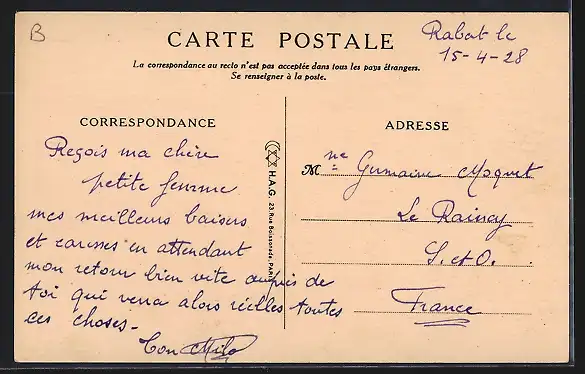 B
CARTE POSTALE
Rabat le
15-4-28
La correspondance au recto n'est pas acceptée dans tous les pays étrangers.
Se renseigner à la poste.
CORRESPONDANCE
Reçois ma chère
petite femme
mes meilleurs baisers
et caresses en attendant
mon retour bien vite auprès de
toi qui verra alors réelles toutes
ces choses-
Ton
H.A.G. 23, Rue Boissonade, PARIS
ADRESSE
Mme Germaine Moquet
Le Raincy
S. et O.
France